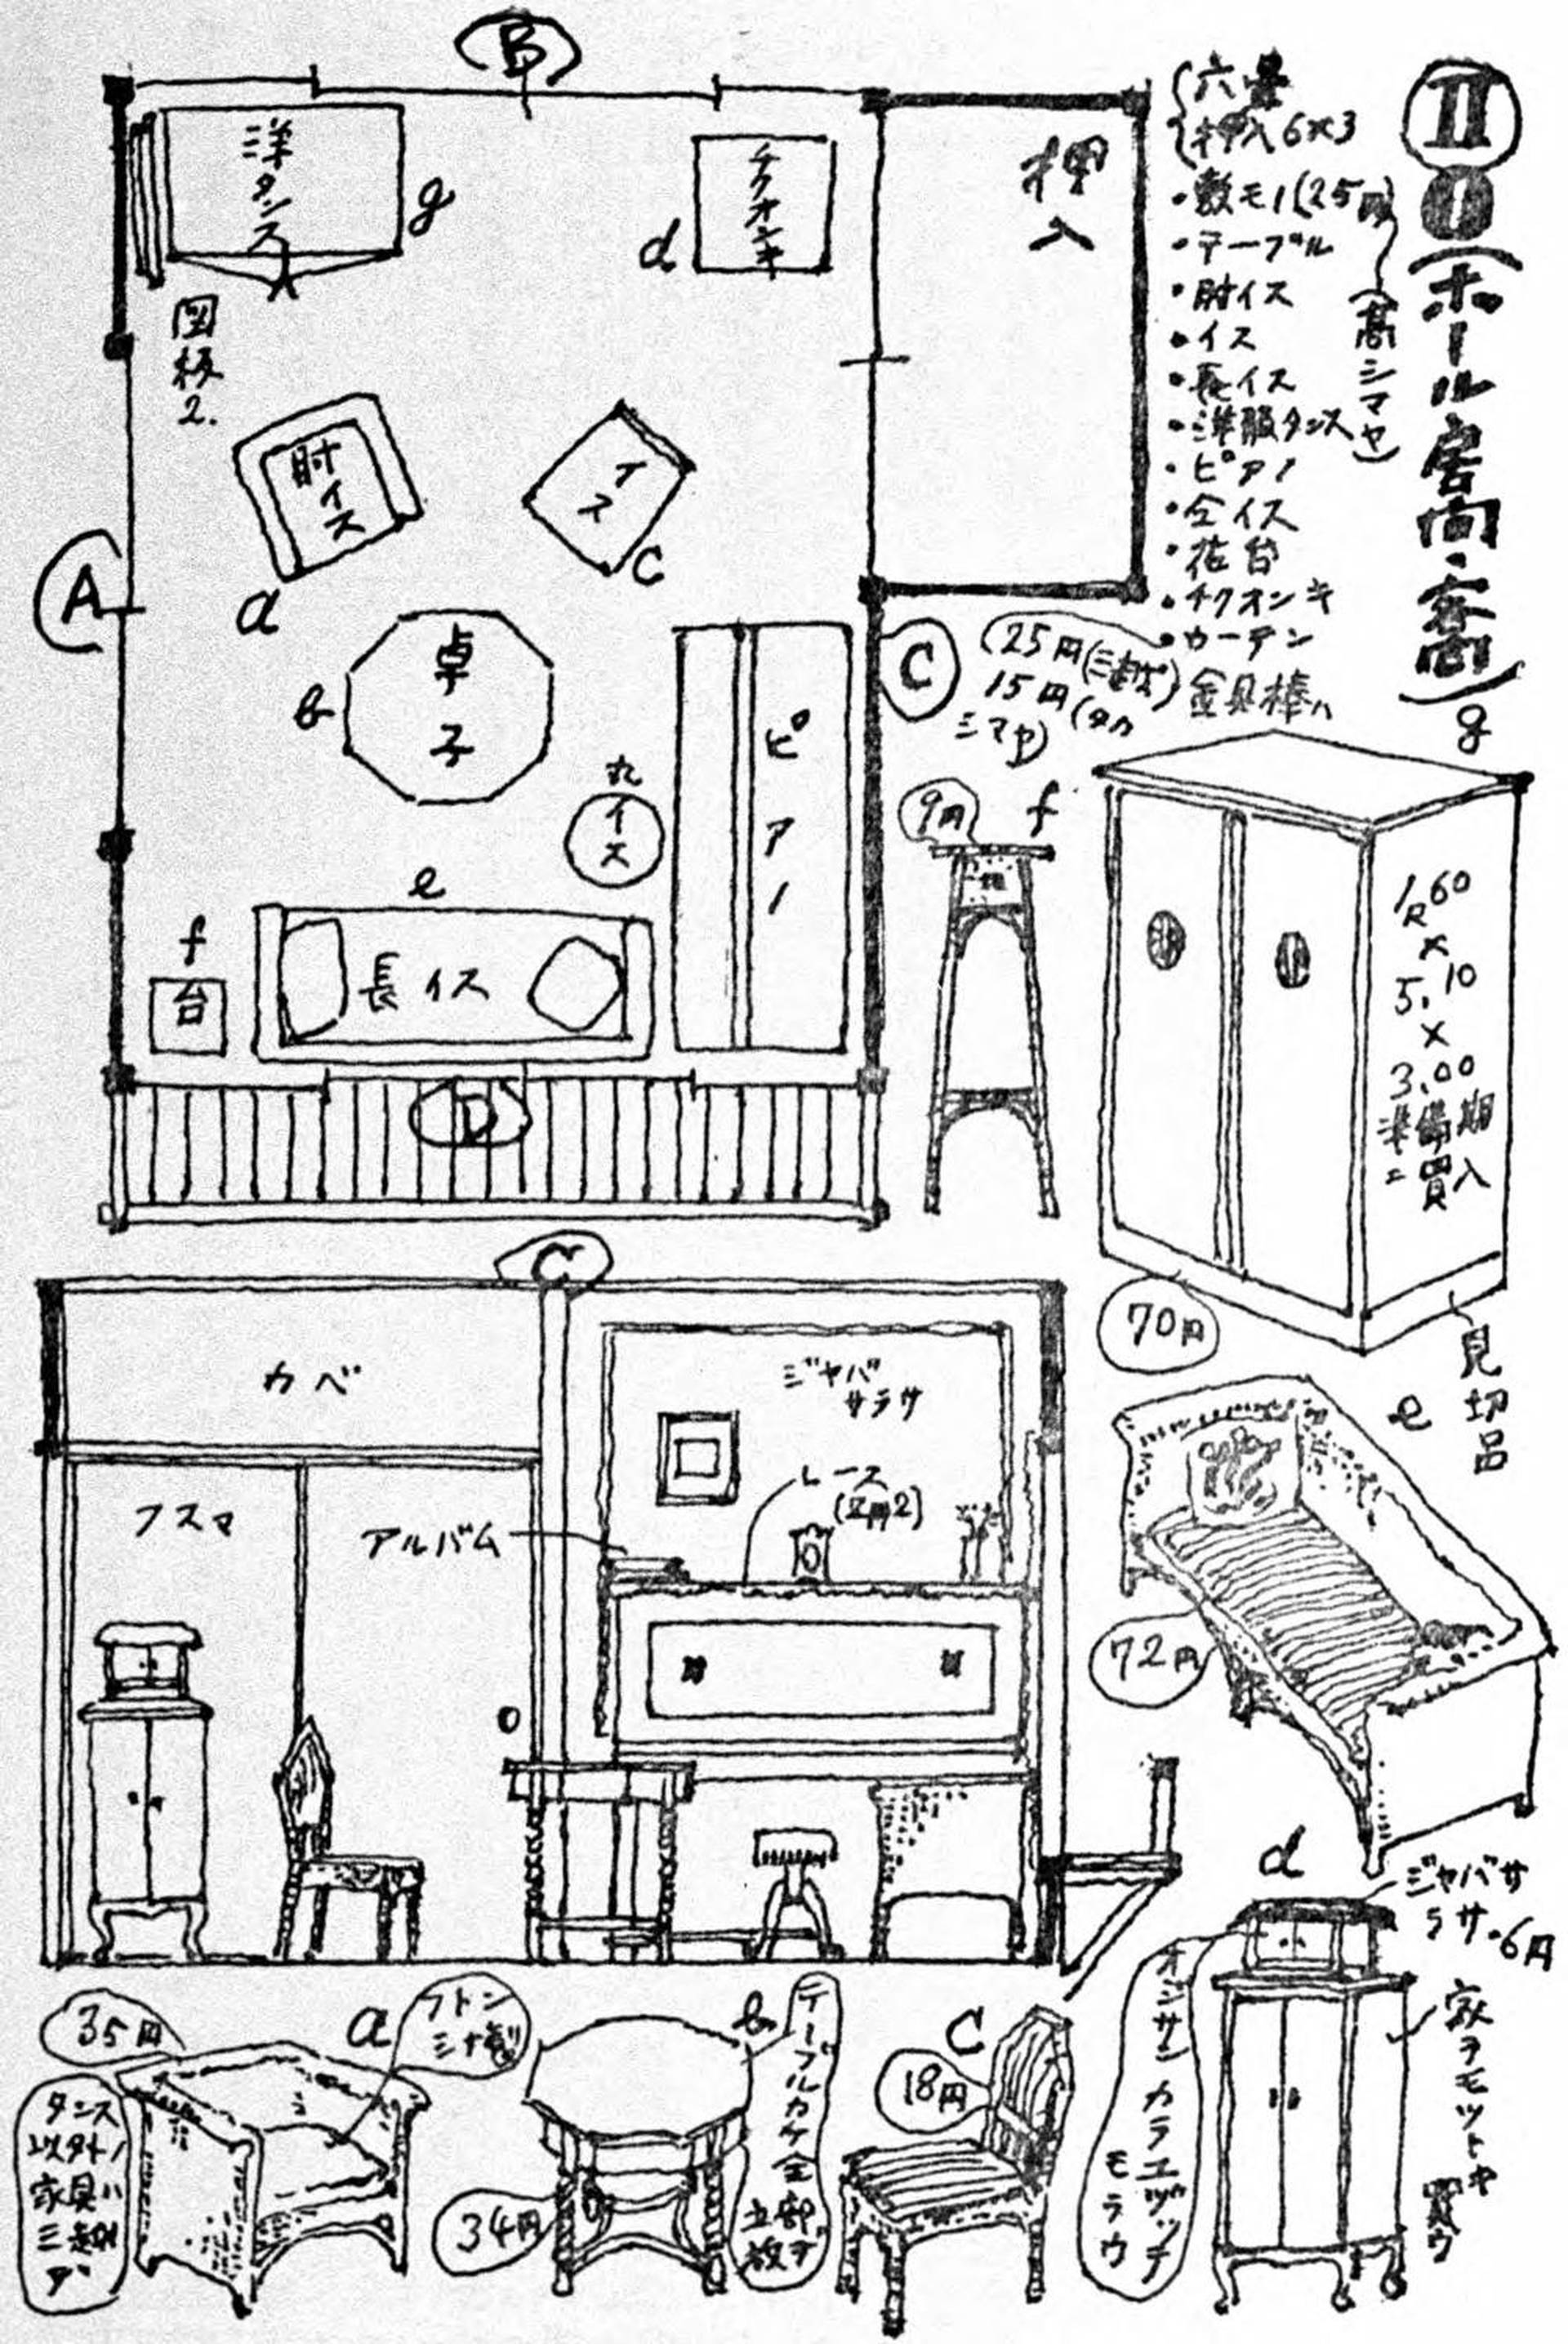 II
I
(ホール客間・客間)
六畳
押入6×3
・敷モノ(25円)
(高シマヤ)
・テーブル
・肘イス
・イス
・長イス
・洋服タンス
・ピアノ
・仝イス
・花台
・チクオンキ
・カーテン
金具棒ハ
25円(三越)
15円(タカシマヤ)
B
洋タンス
g
チクオンキ
d
押入
図板2.
A
肘イス
a
イス
c
C
卓子
b
ピアノ
丸イス
e
長イス
f
台
D
9円
f
g
1R60
×
5.10
×
3.00
準備期ニ買入
70円
見切品
C
カベ
ジャバサラサ
フスマ
アルバム
レース
(2円2)
e
72円
d
ジャバサラサ・6円
オジサンカラユヅッテモラウ
家ヲモツトキ買ウ
35円
a
フトンミナ製
タンス以外ノ家具ハ三越デ
b
テーブルカケ全部デ
34円
c
18円